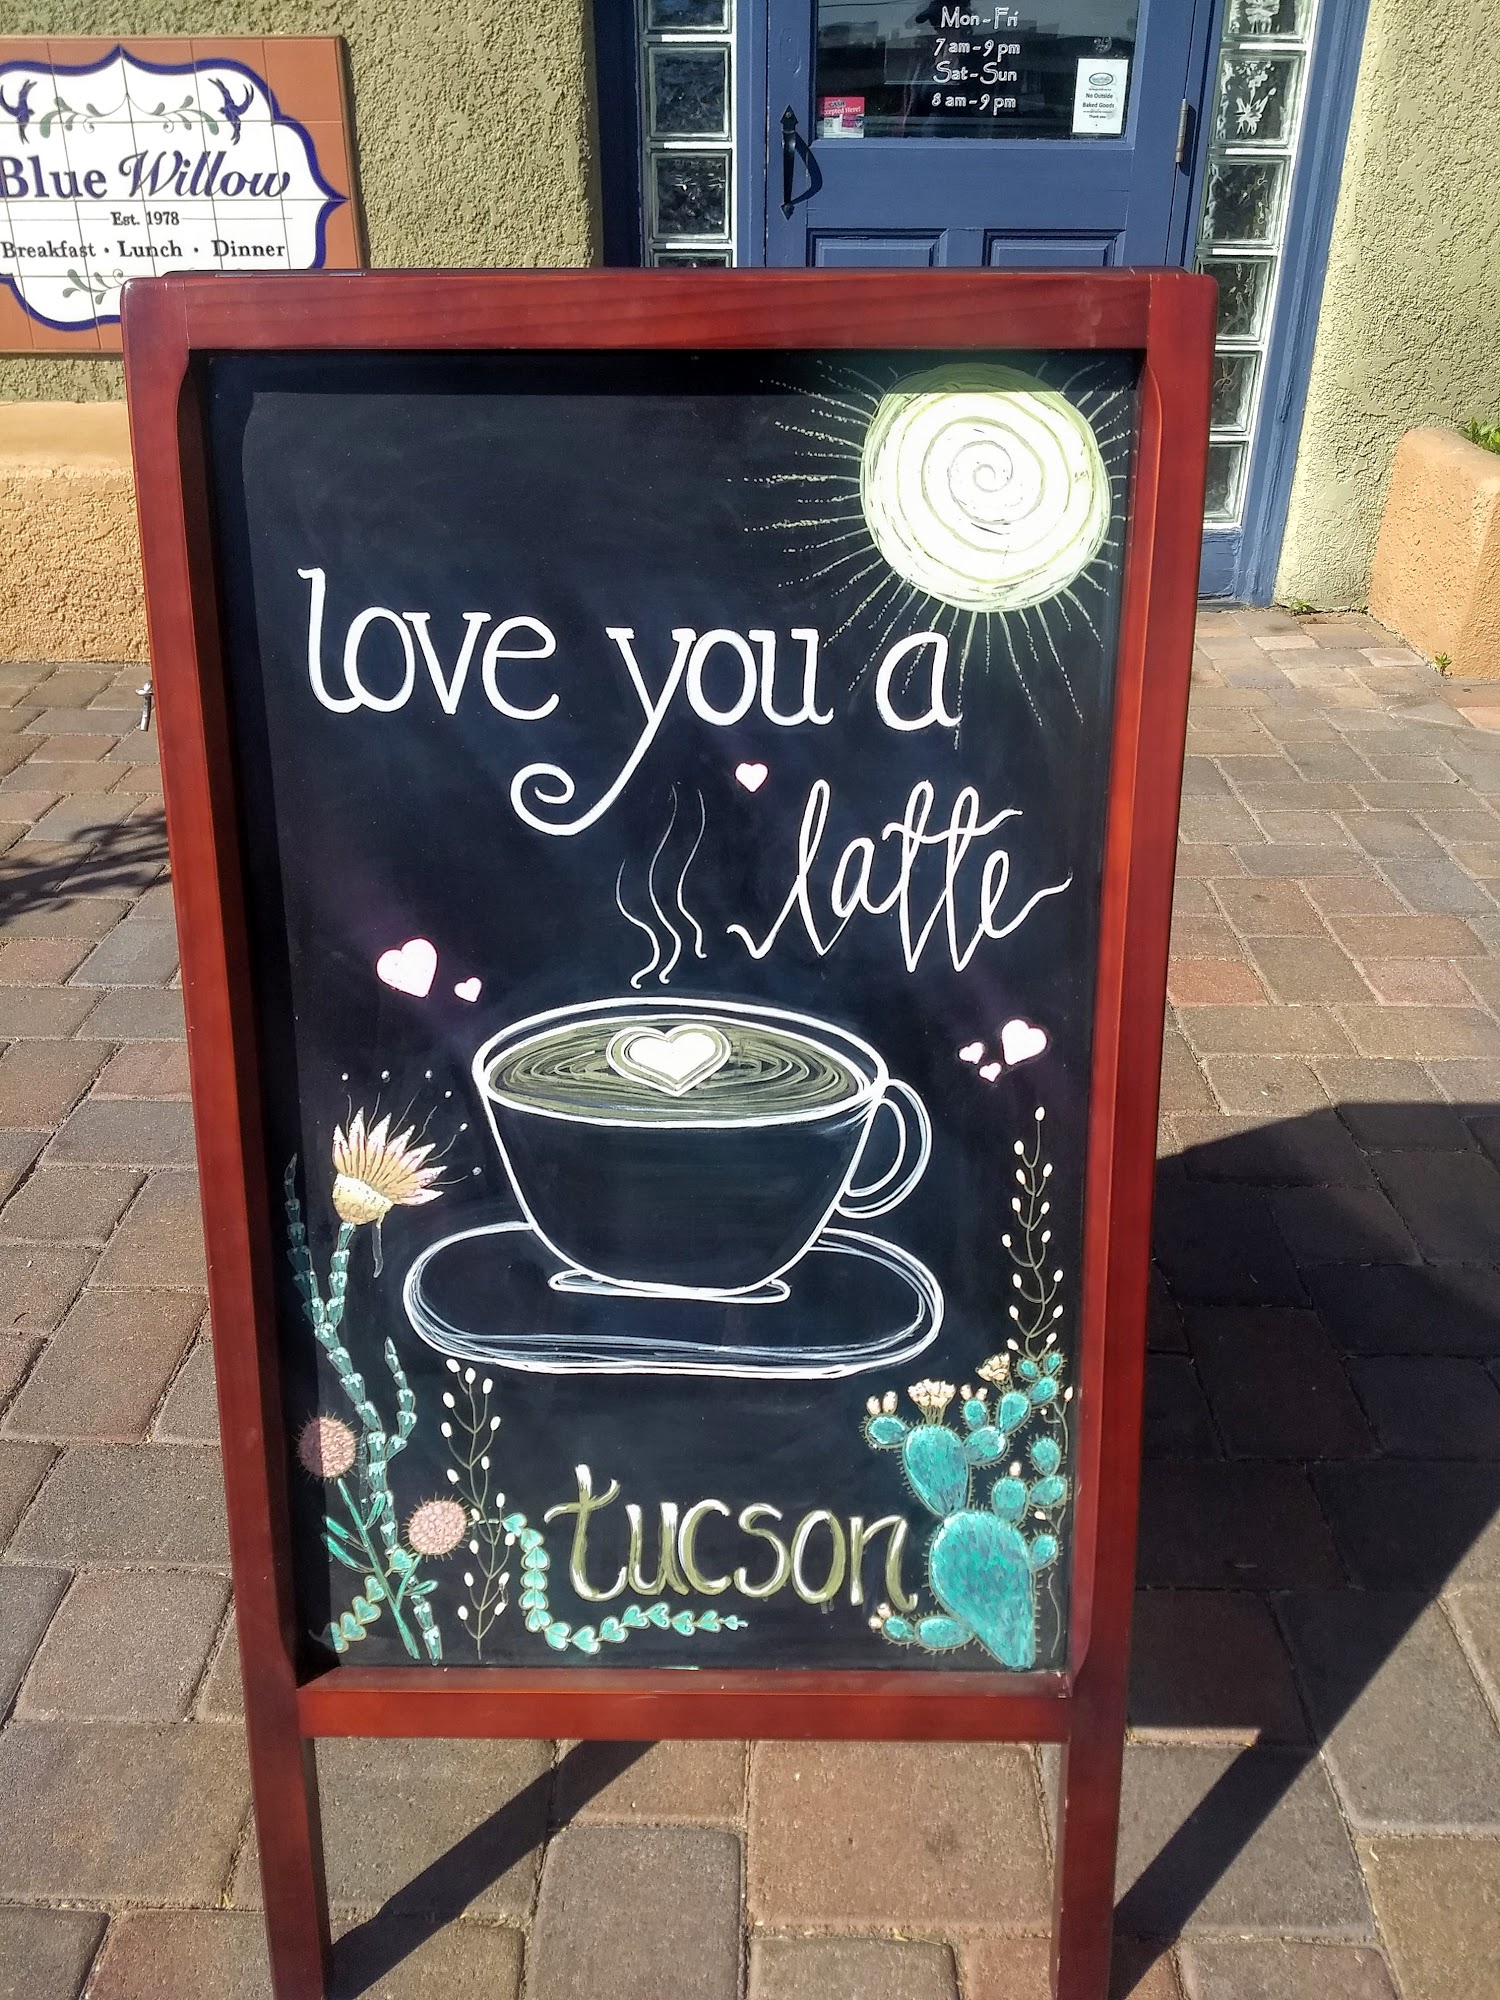 Mon-Fri
7 am-9 pm
Sat-Sun
8 am-9 pm
No Outside
Baked Goods
Thank you
Blue Willow
Est. 1978
Breakfast • Lunch • Dinner
love you a
latte
tucson